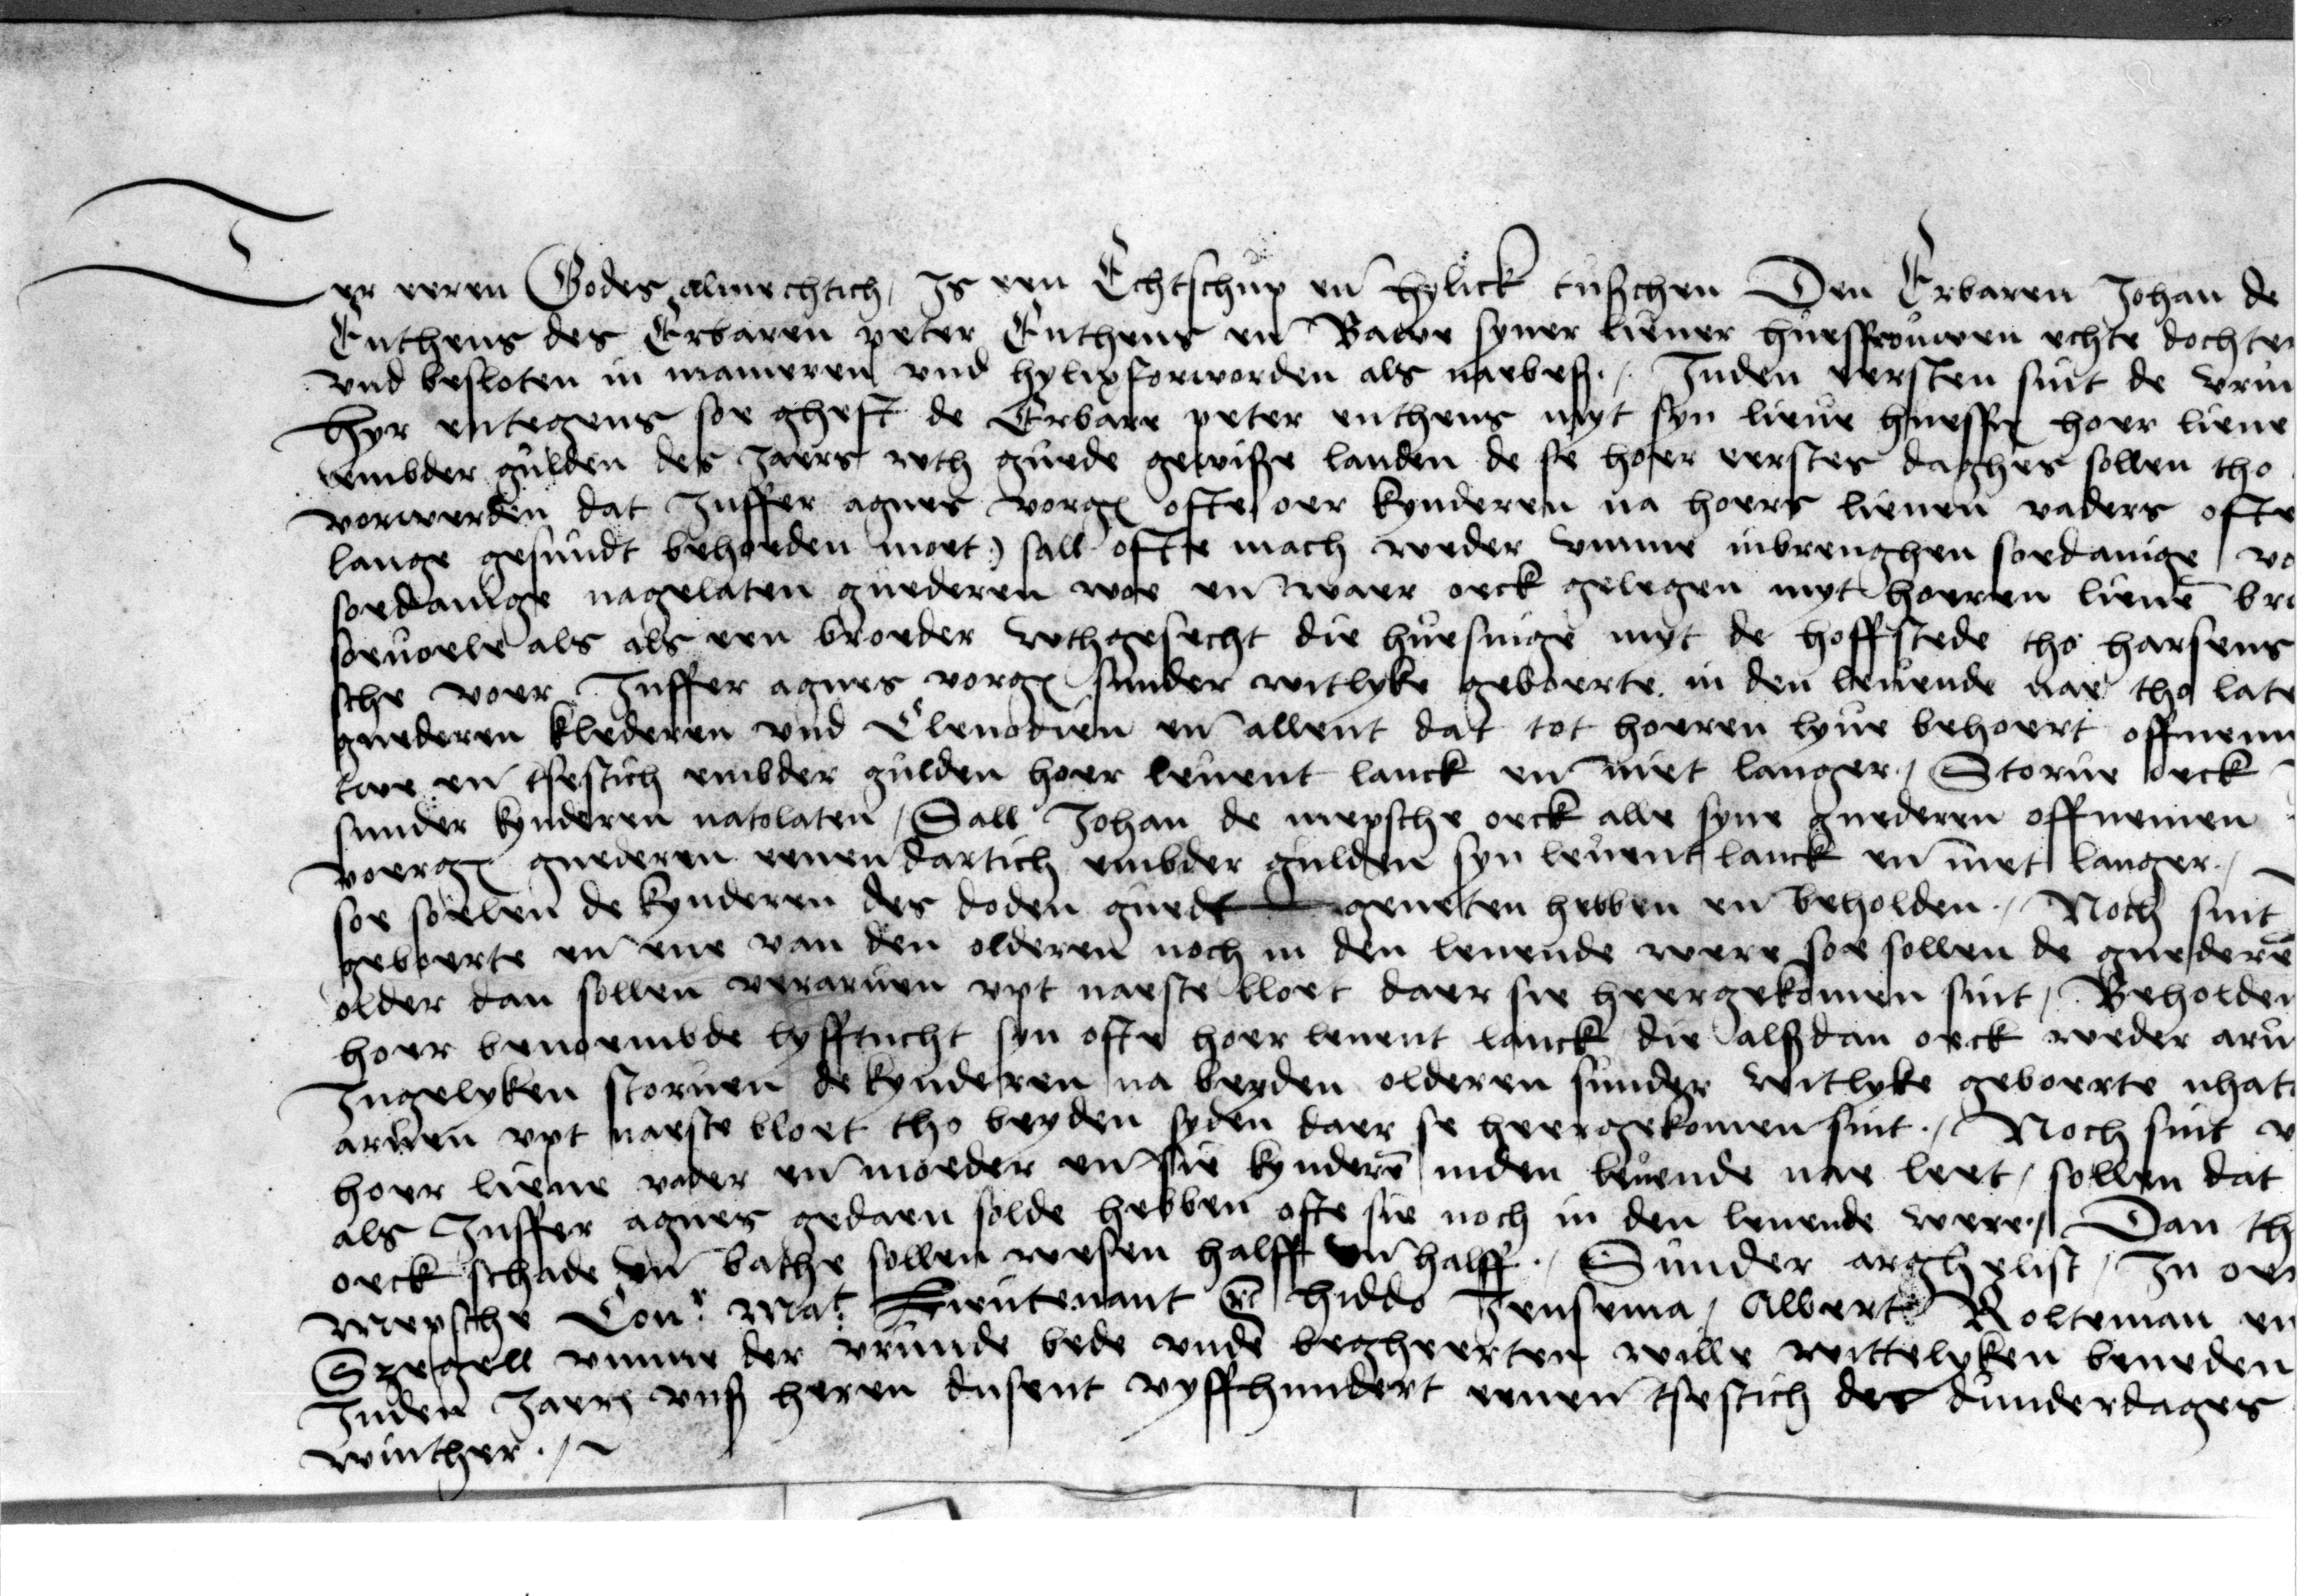 Ter eeren Godes almechtich, Is een Echtschup en̄ hylick tusschen Den Erbaren Johan de
Enthens des Erbaren peter Enthens en̄ Bawe syner liever huesfrouwen echte dochter
vnd besloten in manieren vnd hylixforworden als naebes./. Inden eersten sint de vrun
Hyr entegens soe gheft de Erbare peter enthens myt syn lieue huesfr hoer lieue
embder gulden des Jaers wth guede gewisse landen de se hoer eerstes daghes sollen tho
vorwerden dat Juffer agnes vorg ofte oer kynderen na hoers lieuen vaders ofte
lange gesundt behoeden moet) sall ofte mach weder vmme inbrenghen soedanige vo
soedanige nagelaten guederen woe en̄ waer oeck gelegen myt hoeren lieuē bro
soeuoele als als een broeder wthgesecht die huesinge myt de hoffstede tho harsens
sche voer Juffer agnes vorg sunder witlyke geboerte in den leuende nae tho late
guederen klederen vnd Clenodien en̄ allent dat tot hoeren lyue behoert offnemen
twe en̄ tsestich embder gulden hoer leuent lanck en̄ niet langer./ Storue oeck
sunder kynderen natolaten, Sall Johan de mepsche oeck alle syne guederen offnemen
voerg guederen eenen dartich embder gulden syn leuent lanck en̄ niet langer./
soe soelen de kynderen des doden guedt geneten hebben en̄ beholden./ Noch sint
geboerte en̄ ene van den olderen noch in den leuende were soe sollen de guederē
older dan sollen verarwen vpt naeste bloet daer sie heergekomen sint, Beholden
hoer benoembde lyfftucht syn ofte hoer leuent lanck die alssdan oeck weder aru
Ingelyken storuen de kynderen na beyden olderen sunder witlyke geboerte nhat
arwen vpt naeste bloet tho beyden syden daer se heergekomen sint./ Noch sint v
hoer lieue vader en̄ moeder en̄ sie kynderē inden leuende nae leet, sollen dat
als Juffer agnes gedaen solde hebben ofte sie noch in den leuende were./ Dan th
oeck schade en̄ bathe sollen wesen halff en̄ halff./ Sunder arghelist, In oer
Mepsche Con. Mat. Lieutenant hiddo Jensema, Albert Rolteman en
Szegell vmme der vrunde bede vnde begheerten wille wittelyken beneden
Inden Jaers vnss heren dusent vyffhundert eenen tsestich des dunderdages
winther./~